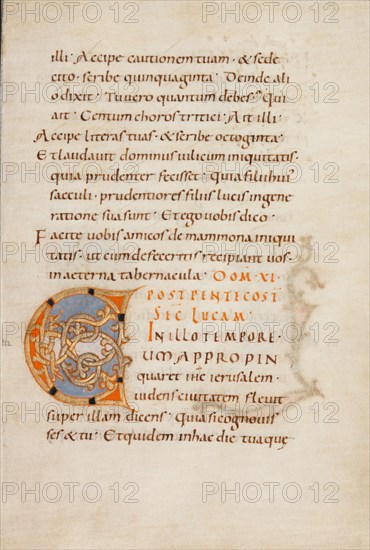 illi · Accipe cautionem tuam · & sede
cito · scribe quinquaginta · Deinde ali
o dixit · Tu vero quantum debes · Qui
ait · Centum choros tritici · Ait illi ·
Accipe literas tuas · & scribe octoginta ·
Et laudavit dominus vilicum iniquitatis ·
quia prudenter fecisset · Quia filii hui'
saeculi · prudentiores filiis lucis in gene
ratione sua sunt · Et ego vobis dico ·
Facite vobis amicos de mammona iniqui
tatis · ut cum defeceritis recipiant vos ·
in aeterna tabernacula · DOM · XI ·
POST PENTECOST
SEC LUCAM ·
IN ILLO TEMPORE
CUM APPROPIN
quaret ihc ierusalem ·
videns civitatem flevit
super illam dicens · Quia si cognovis
ses & tu · Et quidem in hac die tua que
PHOTO 12